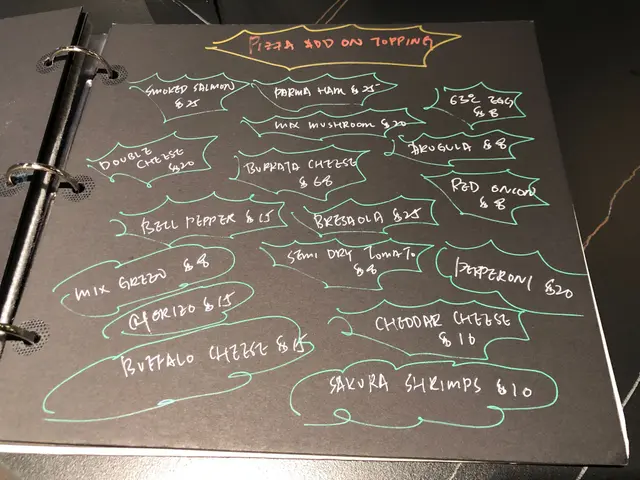 PIZZA ADD ON TOPPING
SMOKED SALMON
$25
PARMA HAM $25
63°C EGG
$8
MIX MUSHROOM $20
ARUGULA $8
DOUBLE
CHEESE
$20
BURRATA CHEESE
$68
RED ONION
$8
BELL PEPPER $15
BRESAOLA $25
SEMI DRY TOMATO
$8
PEPPERONI $20
MIX GREEN $8
CHORIZO $15
CHEDDAR CHEESE
$10
BUFFALO CHEESE $15
SAKURA SHRIMPS $10